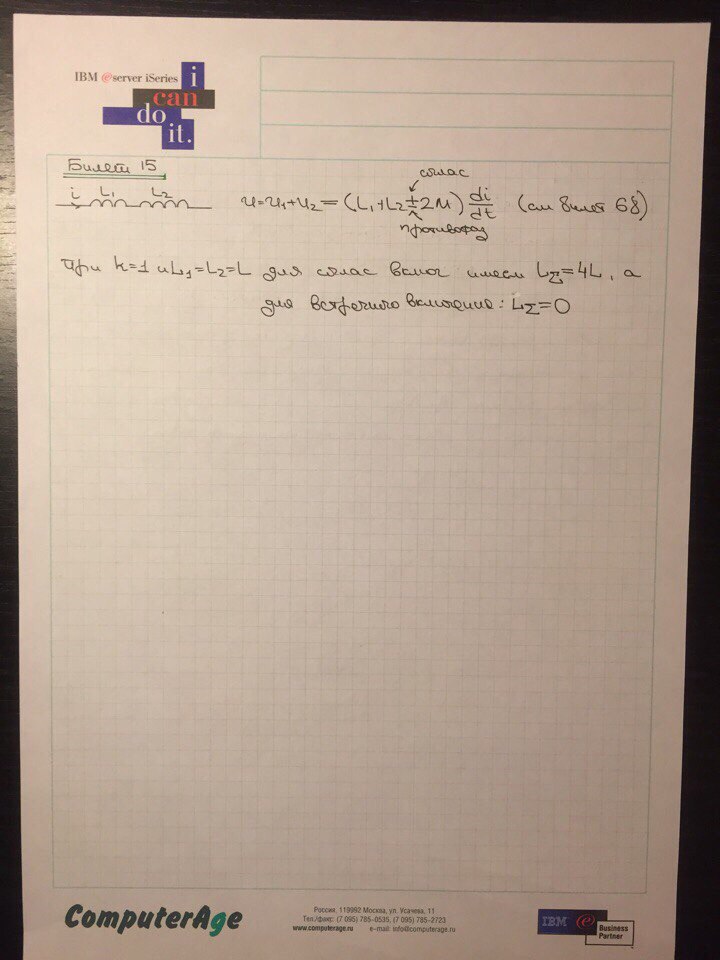 IBM @server iSeries i
can
do
it.
Билет 15
i L₁ L₂ u=u₁+u₂=(L₁+L₂±2M) di/dt (см билет 68)
соглас
противофаз
При k=1 и L₁=L₂=L для соглас включ имеем L_Σ=4L, а
для встречного включения: L_Σ=0
ComputerAge
Россия, 119992 Москва, ул. Усачева, 11
Тел./факс: (7 095) 785-0535, (7 095) 785-2723
www.computerage.ru e-mail: info@computerage.ru
IBM @
Business
Partner